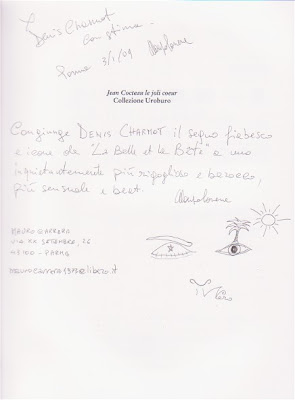 Denis Charmot
con stima.
Parma 3/1/09
Jean Cocteau le joli coeur
Collezione Uroburo
Congiunge DENIS CHARMOT il segno fiabesco
e icone de "La Belle et la Bête" a uno
inquietantemente più spigoloso e bizzarro,
più sensuale e beat.
VIA XX SETTEMBRE, 26
43100 - PARMA